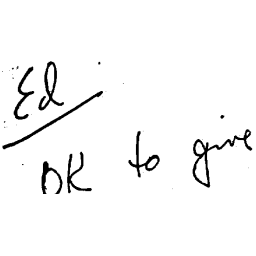 Ed
OK to give